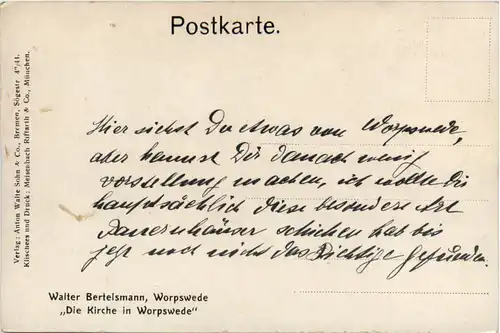 Postkarte.
Verlag: Anton Walte Sohn & Co., Bremen, Sögestr. 42/44.
Klischees und Druck: Meisenbach Riffarth & Co., München.
Hier siehst Du etwas von Worpswede,
aber kannst Dir danach wenig
vorstellung machen, ich wollte Dir
hauptsächlich diese besondere Art
Bauernhäuser schicken hab bis
jetzt noch nicht das Richtige gefunden.
Walter Bertelsmann, Worpswede
„Die Kirche in Worpswede"